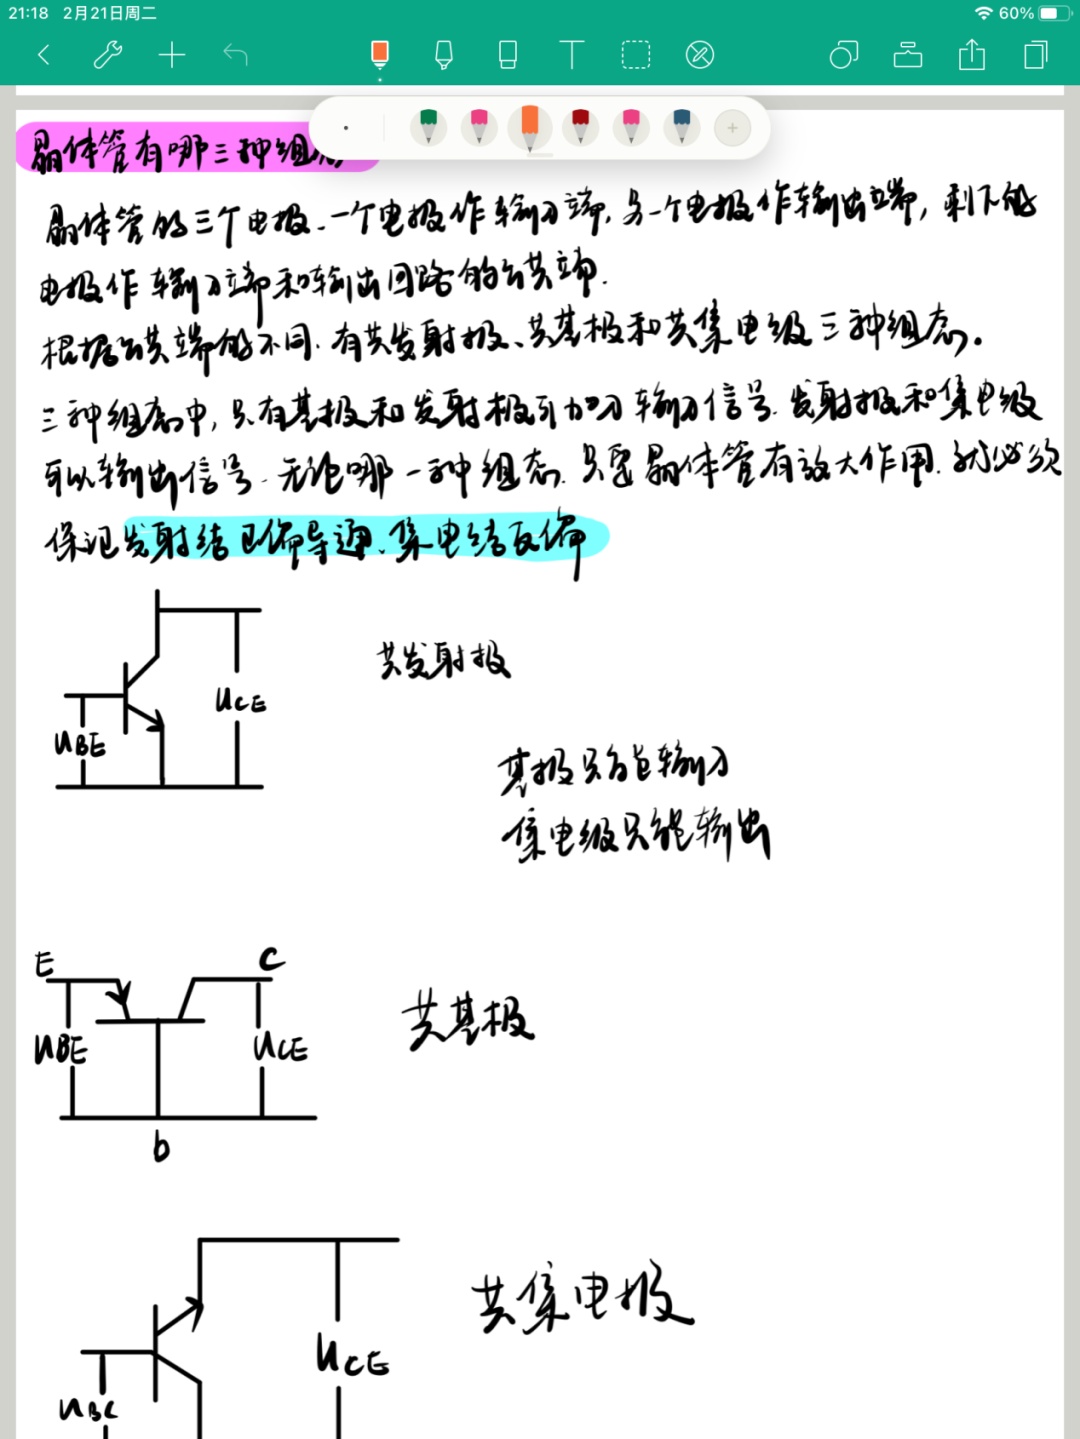 21:18 2月21日周二
60%
晶体管有哪三种组态
晶体管的三个电极、一个电极作输入端,另一个电极作输出端,剩下的
电极作输入端和输出回路的公共端.
根据公共端的不同.有共发射极、共基极和共集电级三种组态。
三种组态中,只有基极和发射极可加入输入信号.发射极和集电级
可以输出信号.无论哪一种组态.只要晶体管有放大作用.就必须
保证发射结正偏导通、集电结反偏
共发射极
UCE
UBE
基极只能输入
集电级只能输出
E
C
共基极
UBE
UCE
b
共集电极
UCE
UBC